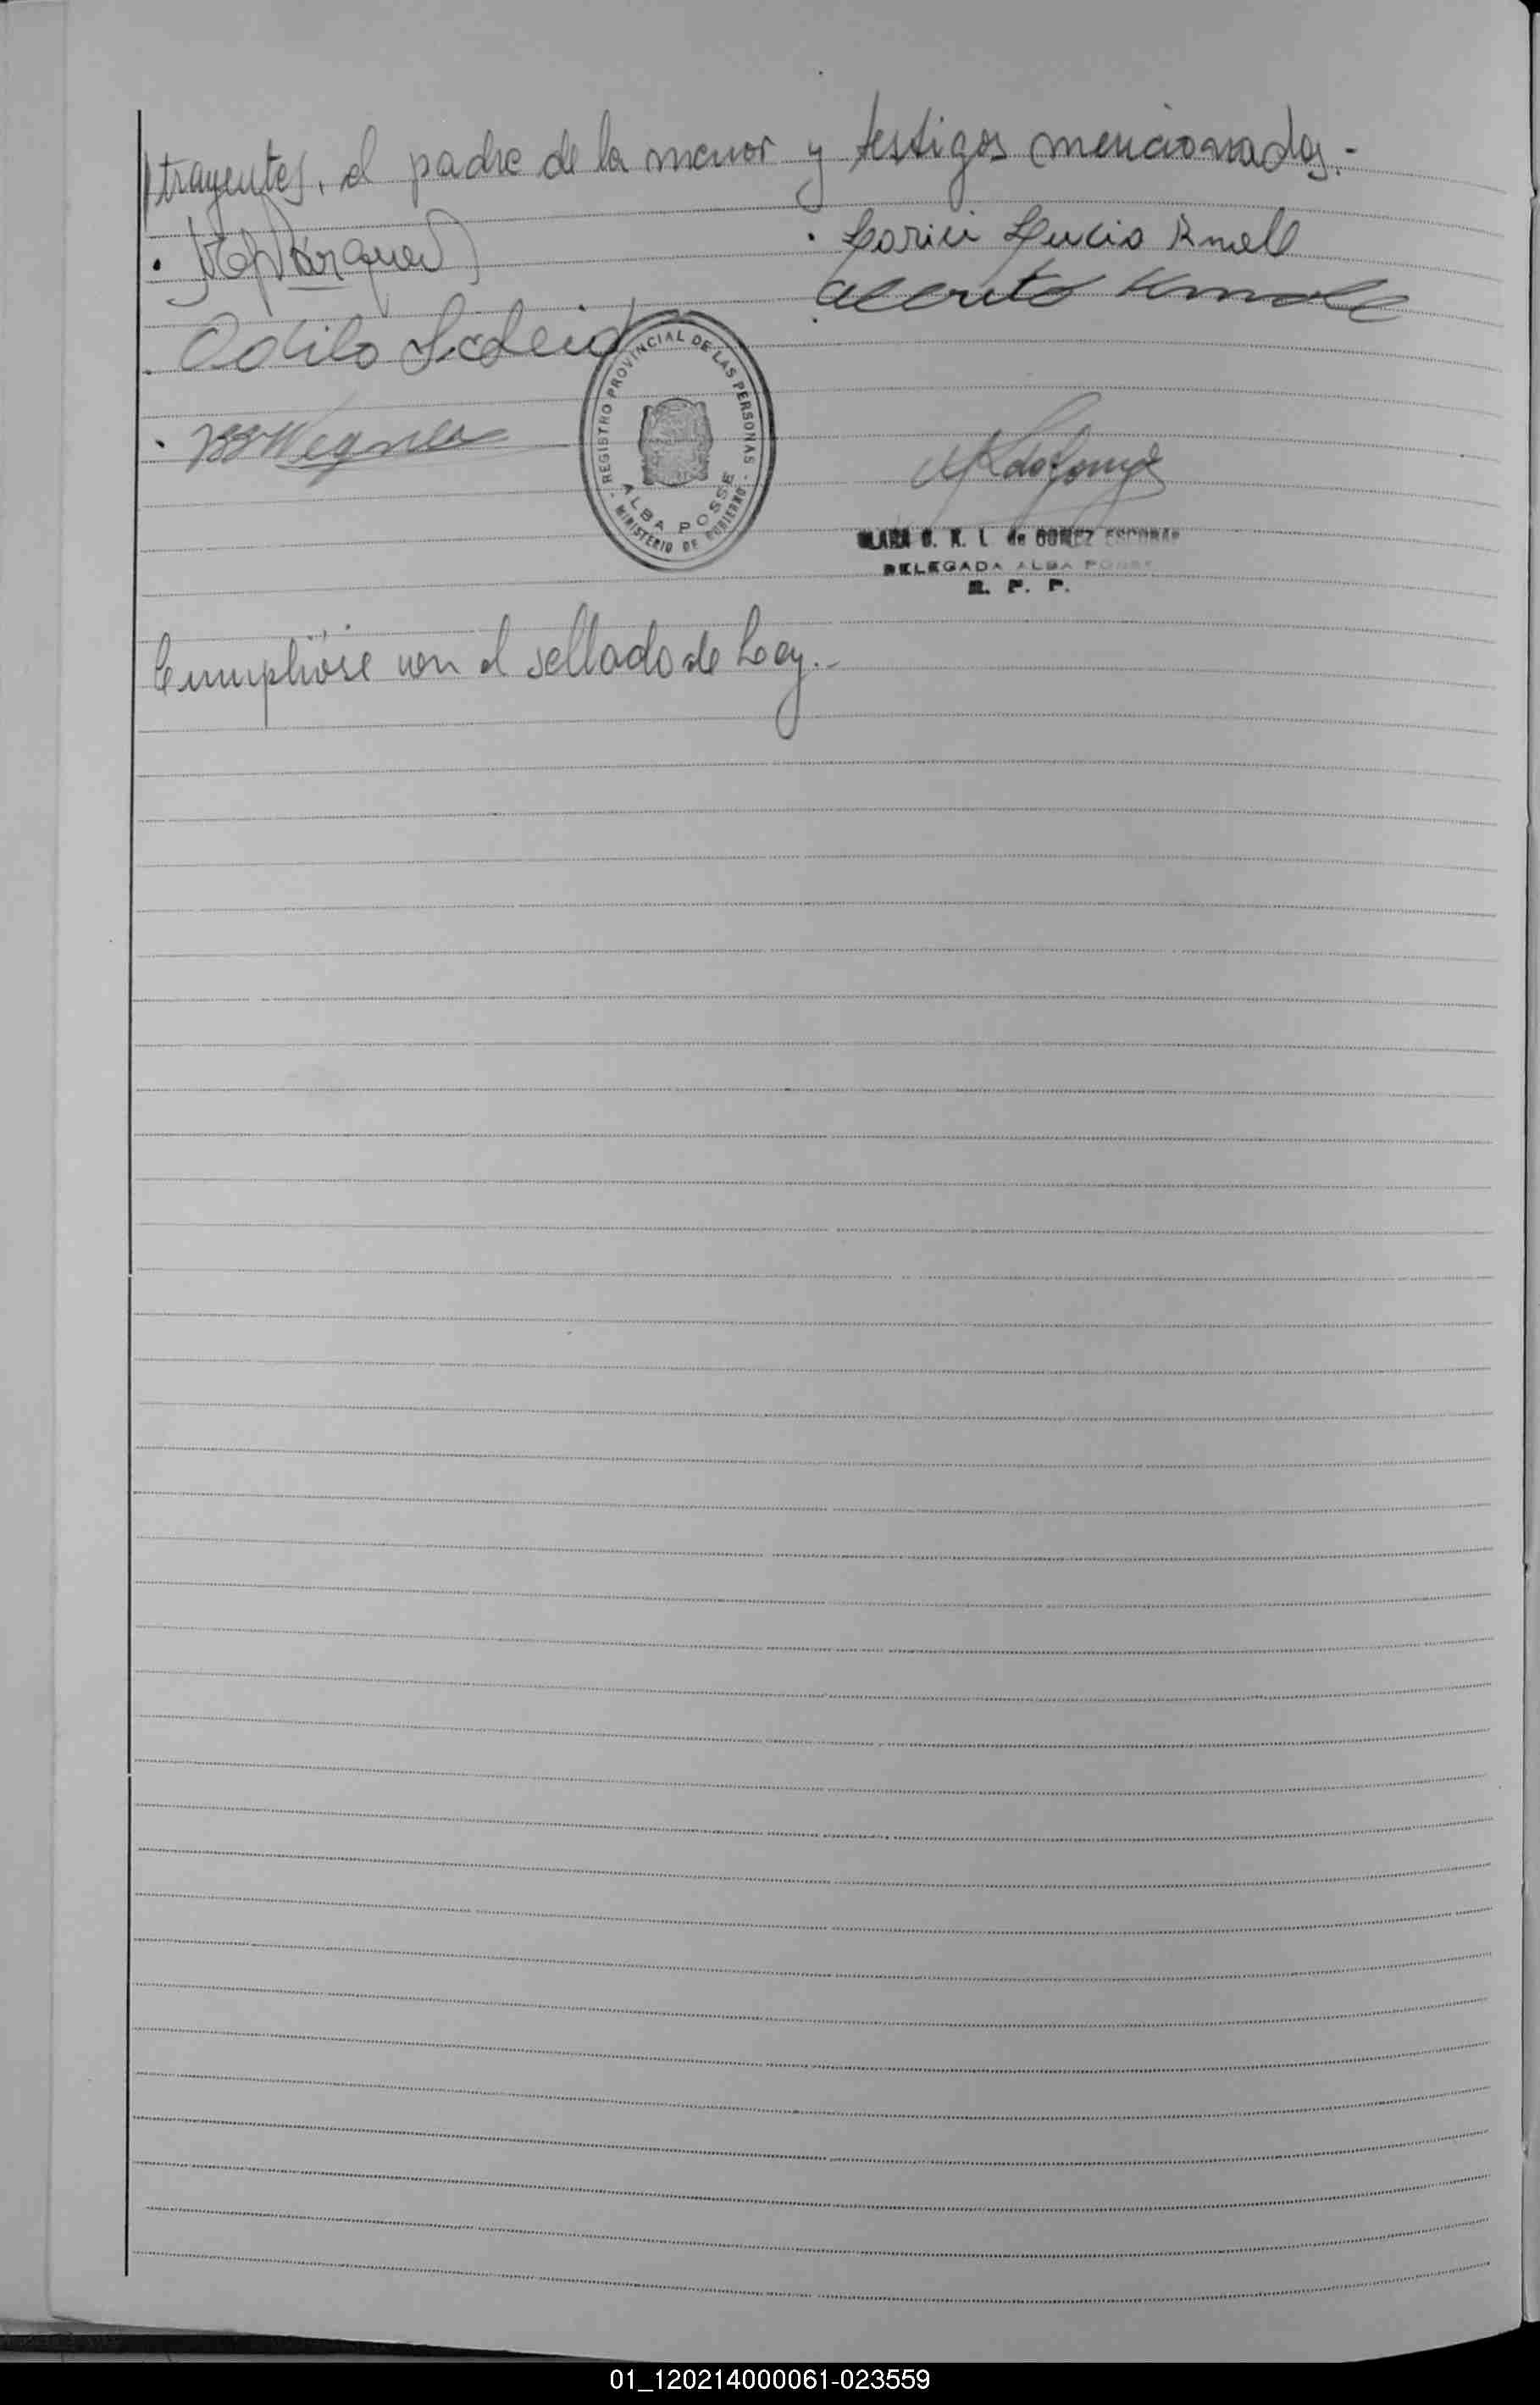 trayentes, el padre de la menor y testigos mencionados.-
Lucia Knell
Alberto Knoll
Odilo
Wegner
REGISTRO PROVINCIAL DE LAS PERSONAS
ALBA POSSE
MINISTERIO DE GOBIERNO
G. K. L. de GOMEZ ESCOBAR
DELEGADA ALBA POSSE
R. P. P.
Cumplióse con el sellado de Ley.-
01_120214000061-023559